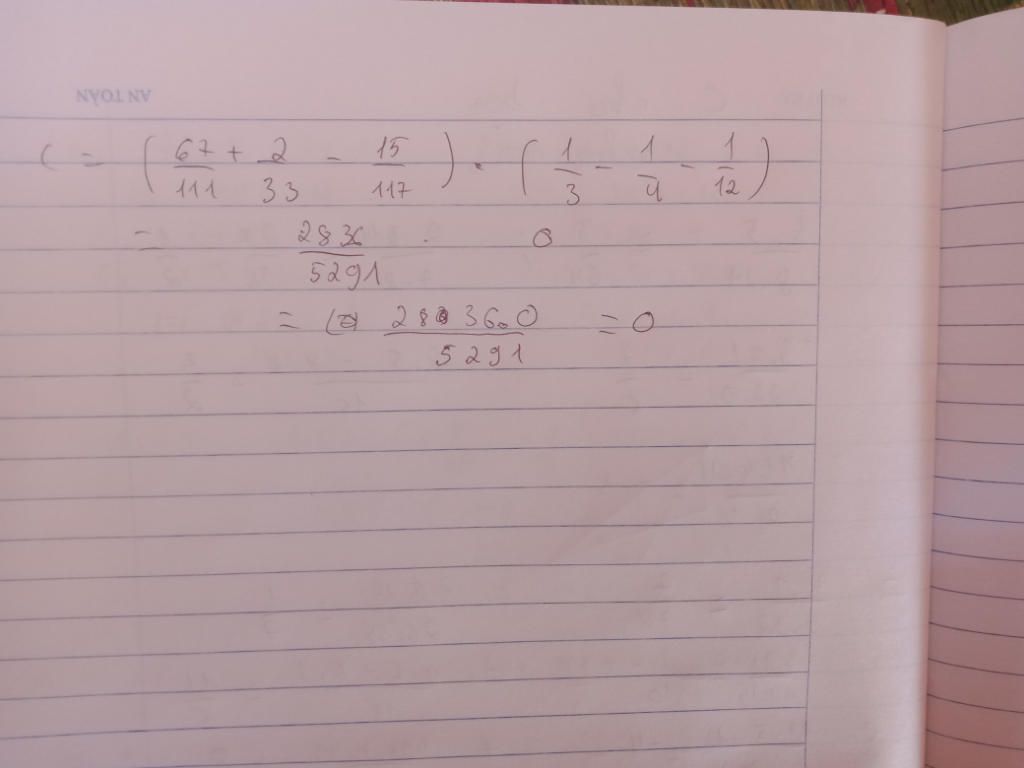 AN TOÀN
C = (67/111 + 2/33 - 15/117) . (1/3 - 1/4 - 1/12)
= 2836/5291 . 0
= 2836.0/5291 = 0